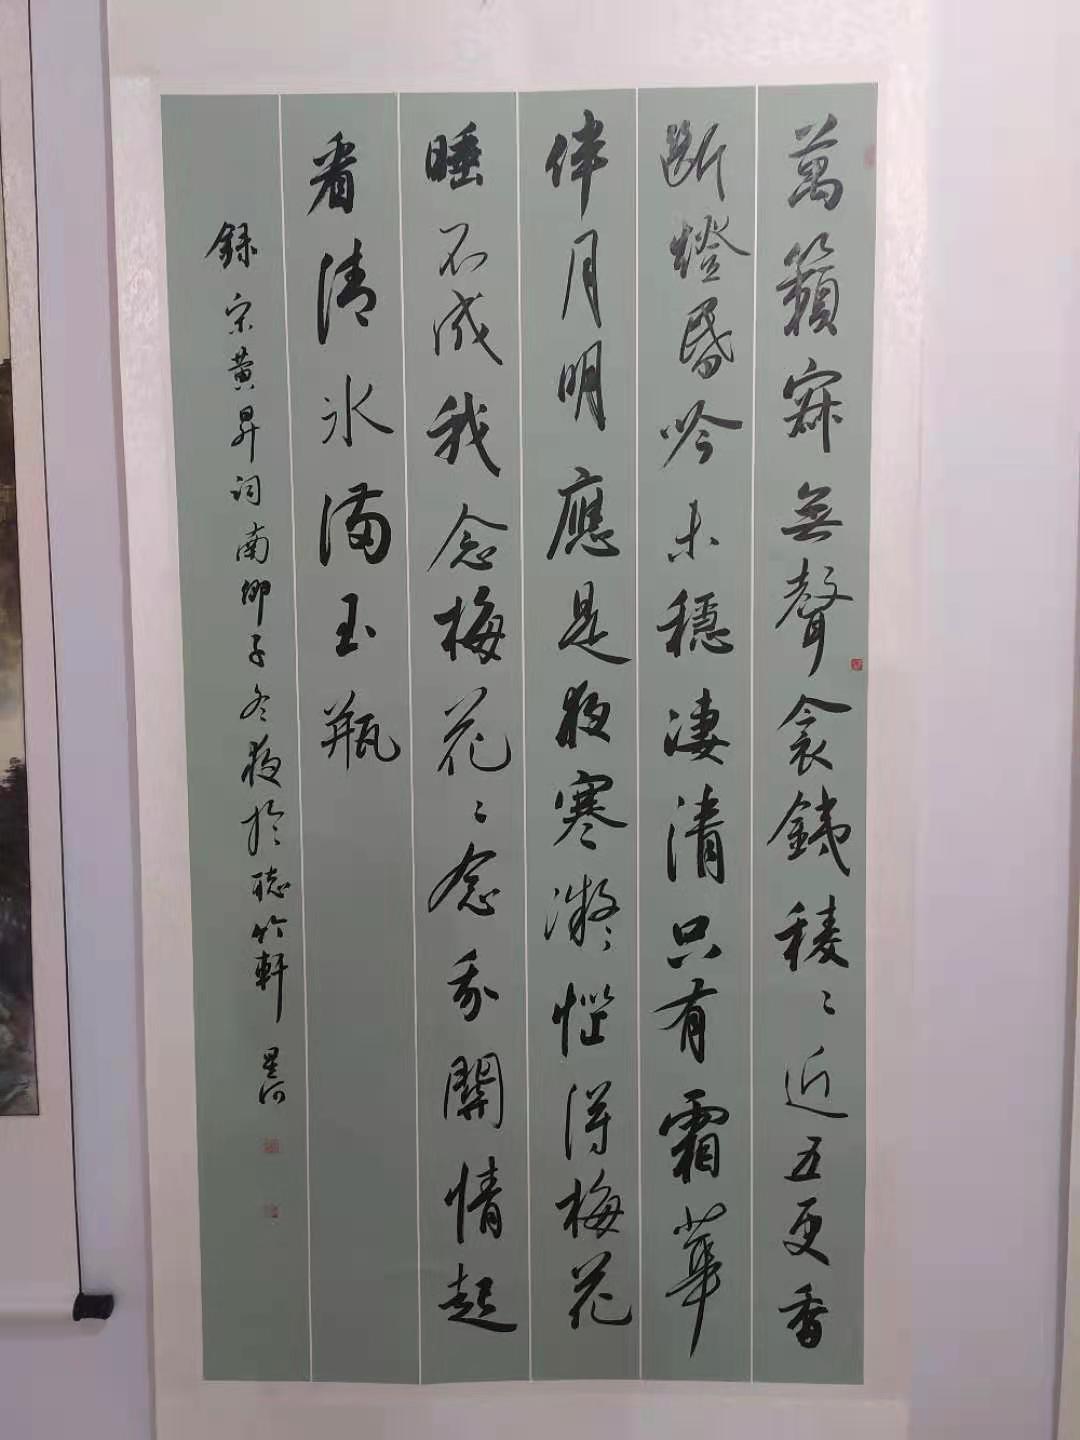 萬籟寂無聲衾鐵稜〻近五更香
斷燈昏吟未穩淒清只有霜華
伴月明應是夜寒凝〻惱得梅花
睡不成我念梅花〻念我關情起
看清冰滿玉瓶
錄宋黄昇词南鄉子冬夜於聽竹軒星河